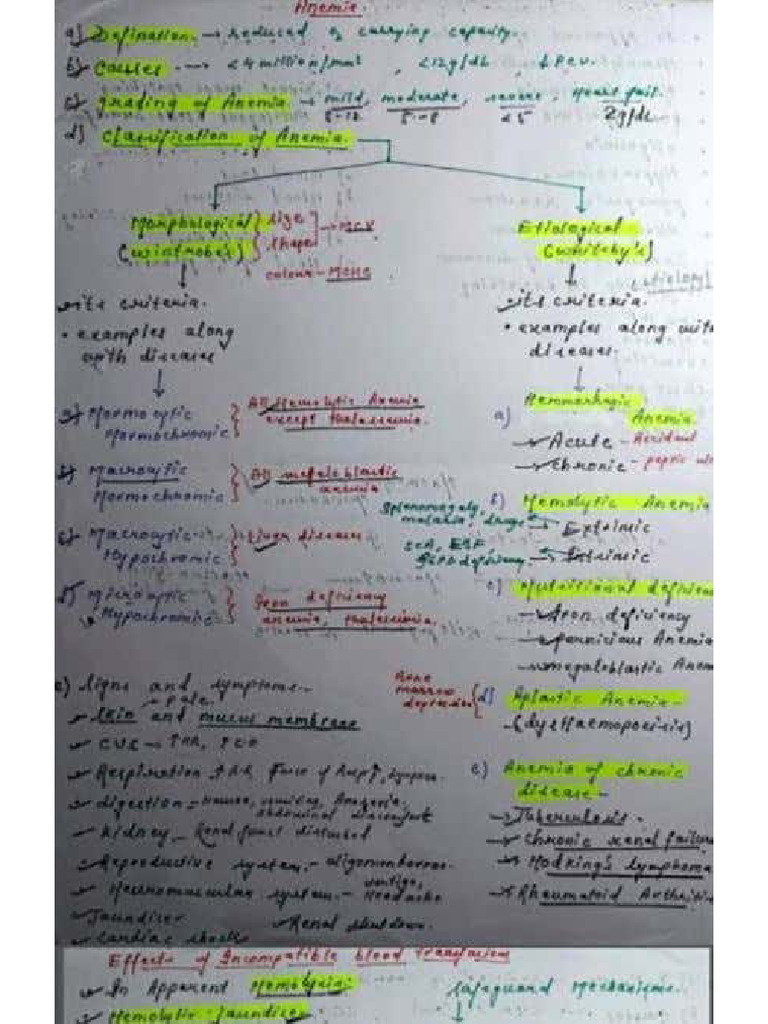 Anemia.
a) Defination. → reduced O2 carrying capacity.
b) Causes → <4 million/mm³, <12g/dL, ↓ P.C.V.
c) grading of Anemia → mild, moderate, severe, Heart fail.
5-8 <5 2g/dL
d) Classification of Anemia.
Morphological { size
(wintrobe's) { shape → MCV
colour - MCHC
its criteria.
• examples along
with diseases
a) Normocytic
Normochromic
All Hemolytic Anemia
except thalassemia.
b) Macrocytic
Normochromic
All megaloblastic
anemia
c) Macrocytic
Hypochromic
Liver disease
d) Microcytic
Hypochromic
Iron deficiency
anemia, thalassimia.
Etiological
(whitby's)
etiology
its criteria.
• examples along with
diseases
a) Hemmorhagic
Anemia.
Acute - Accidant
Chronic - peptic
b) Hemolytic Anemia
Splenomegaly,
malaria, drugs
Extrinsic
Intrinsic
deficiency
c) Nutritional deficien
Iron deficiency
Pernicious Anemia
megaloblastic Anem
Bone
marrow
depression
d) Aplastic Anemia -
(dys Haemopoeisis)
e) Anemia of chronic
disease -
Tuberculosis.
Chronic renal failure
Hodking's lymphoma
Rheumatoid Arthritis
e) Signs and symptoms -
pale
skin and mucus membrane
C.V.S → ↑HR, ↑CO
Respiration ↑ R.R, Force of Resp↑,
digestion = Nausea, vomiting, Anorexia,
abdominal discomfort
Kidney - Renal funct disturbed
Reproductive system -
Neuromuscular system - vertigo,
Headache
Jaundice Renal shutdown.
Cardiac shock
Effects of Incompatible blood Transfusion
In Apparent Hemolysis. Safeguard Mechanisms.
Hemolytic Jaundice